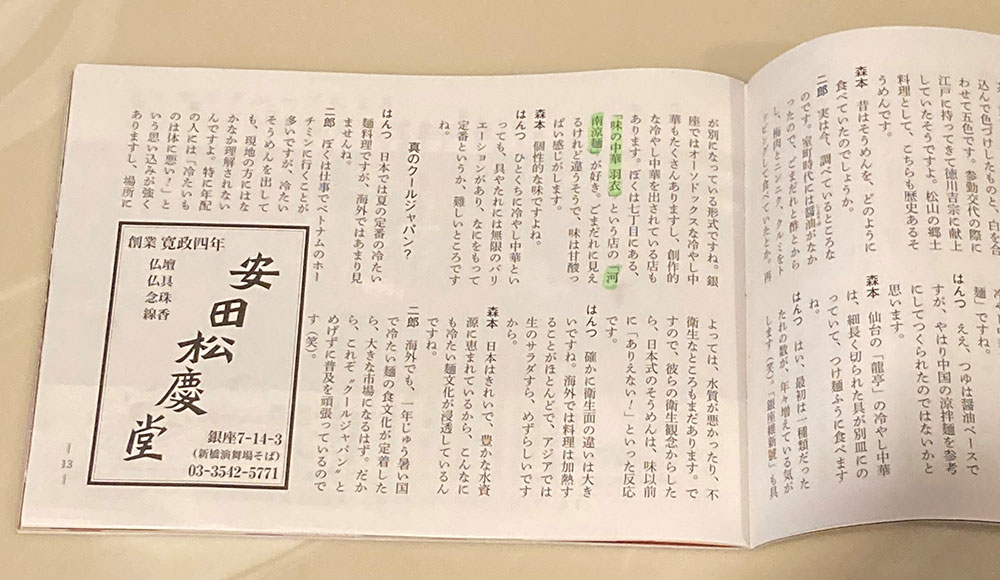 込んで色づけしたものと、白を合
わせて五色です。参勤交代の際に
江戸に持ってきて徳川吉宗に献上
していたそうですよ。松山の郷土
料理として、こちらも歴史あるそ
うめんです。
森本　昔はそうめんを、どのように
食べていたのでしょうか。
二郎　実は今、調べているところな
のです。室町時代には醤油がなか
ったので、ごまだれと酢とから
し、梅肉とニンニク、クルミをト
ッピングして食べていたとか。再
麺」ですね。
はんつ　ええ、つゆは醤油ベースで
すが、やはり中国の涼拌麺を参考
にしてつくられたのではないかと
思います。
森本　仙台の「龍亭」の冷やし中華
は、細長く切られた具が別皿にの
っていて、つけ麺ふうに食べます
ね。
はんつ　はい、最初は一種類だった
たれの数が、年々増えている気が
します（笑）。「銀座維新號」も具
が別になっている形式ですね。銀
座ではオーソドックスな冷やし中
華もたくさんありますし、創作的
な冷やし中華を出されている店も
あります。ぼくは七丁目にある、
「味の中華 羽衣」という店の「河
南涼麺」が好き。ごまだれに見え
るけれど違うそうで、味は甘酸っ
ぱい感じがします。
森本　個性的な味ですよね。
はんつ　ひとくちに冷やし中華とい
っても、具やたれには無限のバリ
エーションがあり、なにをもって
定番というか、難しいところです
ね。
真のクールジャパン？
はんつ　日本では夏の定番の冷たい
麺料理ですが、海外ではあまり見
ませんね。
二郎　ぼくは仕事でベトナムのホー
チミンに行くことが
多いですが、冷たい
そうめんを出して
も、現地の方にはな
かなか理解されない
んですよ。特に年配
の人には「冷たいも
のは体に悪い？」と
いう思い込みが強く
ありますし、場所に
よっては、水質が悪かったり、不
衛生なところもまだあります。で
すので、彼らの衛生観念からした
ら、日本式のそうめんは、味以前
に「ありえない！」といった反応
です。
はんつ　確かに衛生面の違いは大き
いですね。海外では料理は加熱す
ることがほとんどで、アジアでは
生のサラダすら、めずらしいです
から。
森本　日本はきれいで、豊かな水資
源に恵まれているから、こんなに
も冷たい麺文化が浸透しているん
ですね。
二郎　海外でも、一年じゅう暑い国
で冷たい麺の食文化が定着した
ら、大きな市場になるはず。だか
ら、これぞ〝クールジャパン〟と
めげずに普及を頑張っているので
す（笑）。
創業 寛政四年
仏壇
仏具
念珠
線香
安田松慶堂
銀座7-14-3
(新橋演舞場そば)
03-3542-5771
13